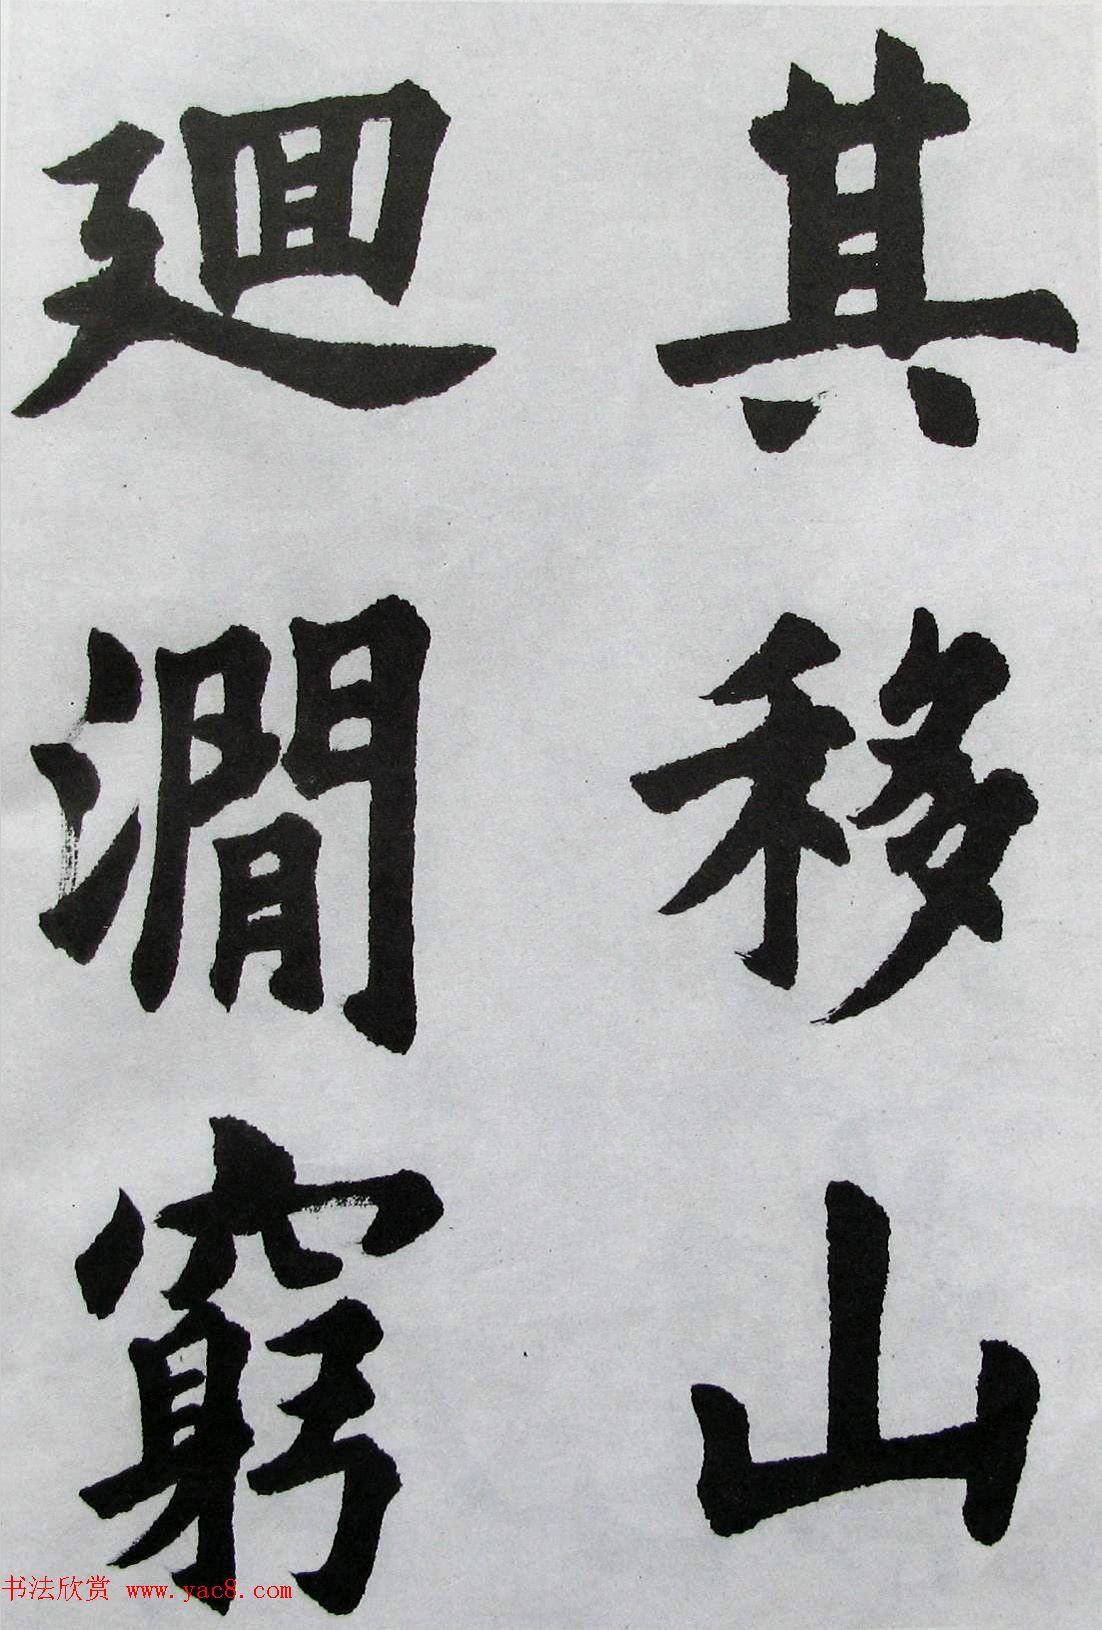 其移山
迴澗窮
书法欣赏 www.yac8.com